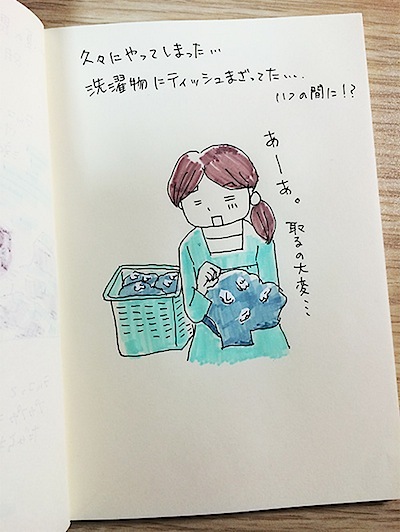 久々にやってしまった…
洗濯物にティッシュまざってた….
いつの間に!?
あーあ。
取るの大変…